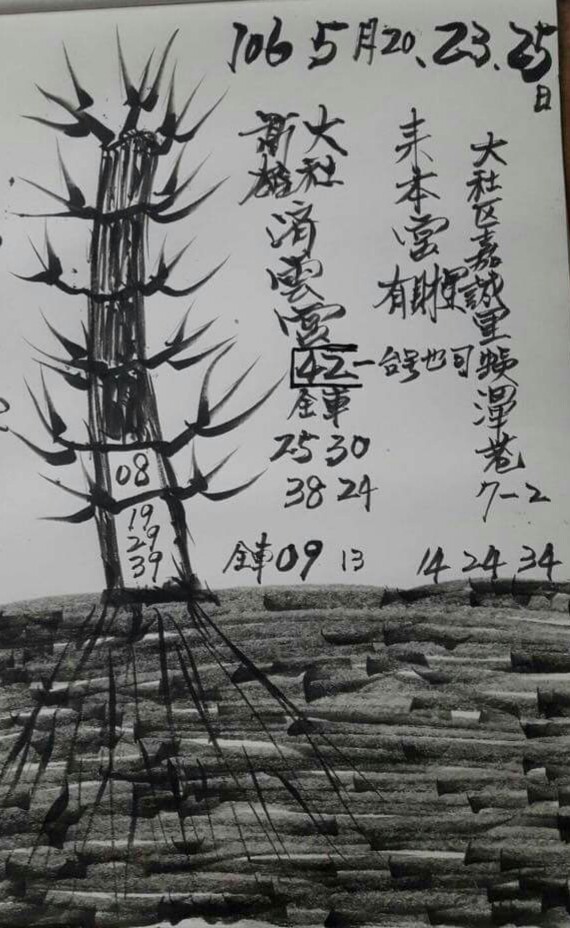 106 5月20、23、25日
大社区嘉誠里蜈潭巷7-2
来本宮
有財寶
大社
高雄
済雲宮
42一台号也可
全車
25 30
38 24
08
19
29
39
全車09 13 14 24 34